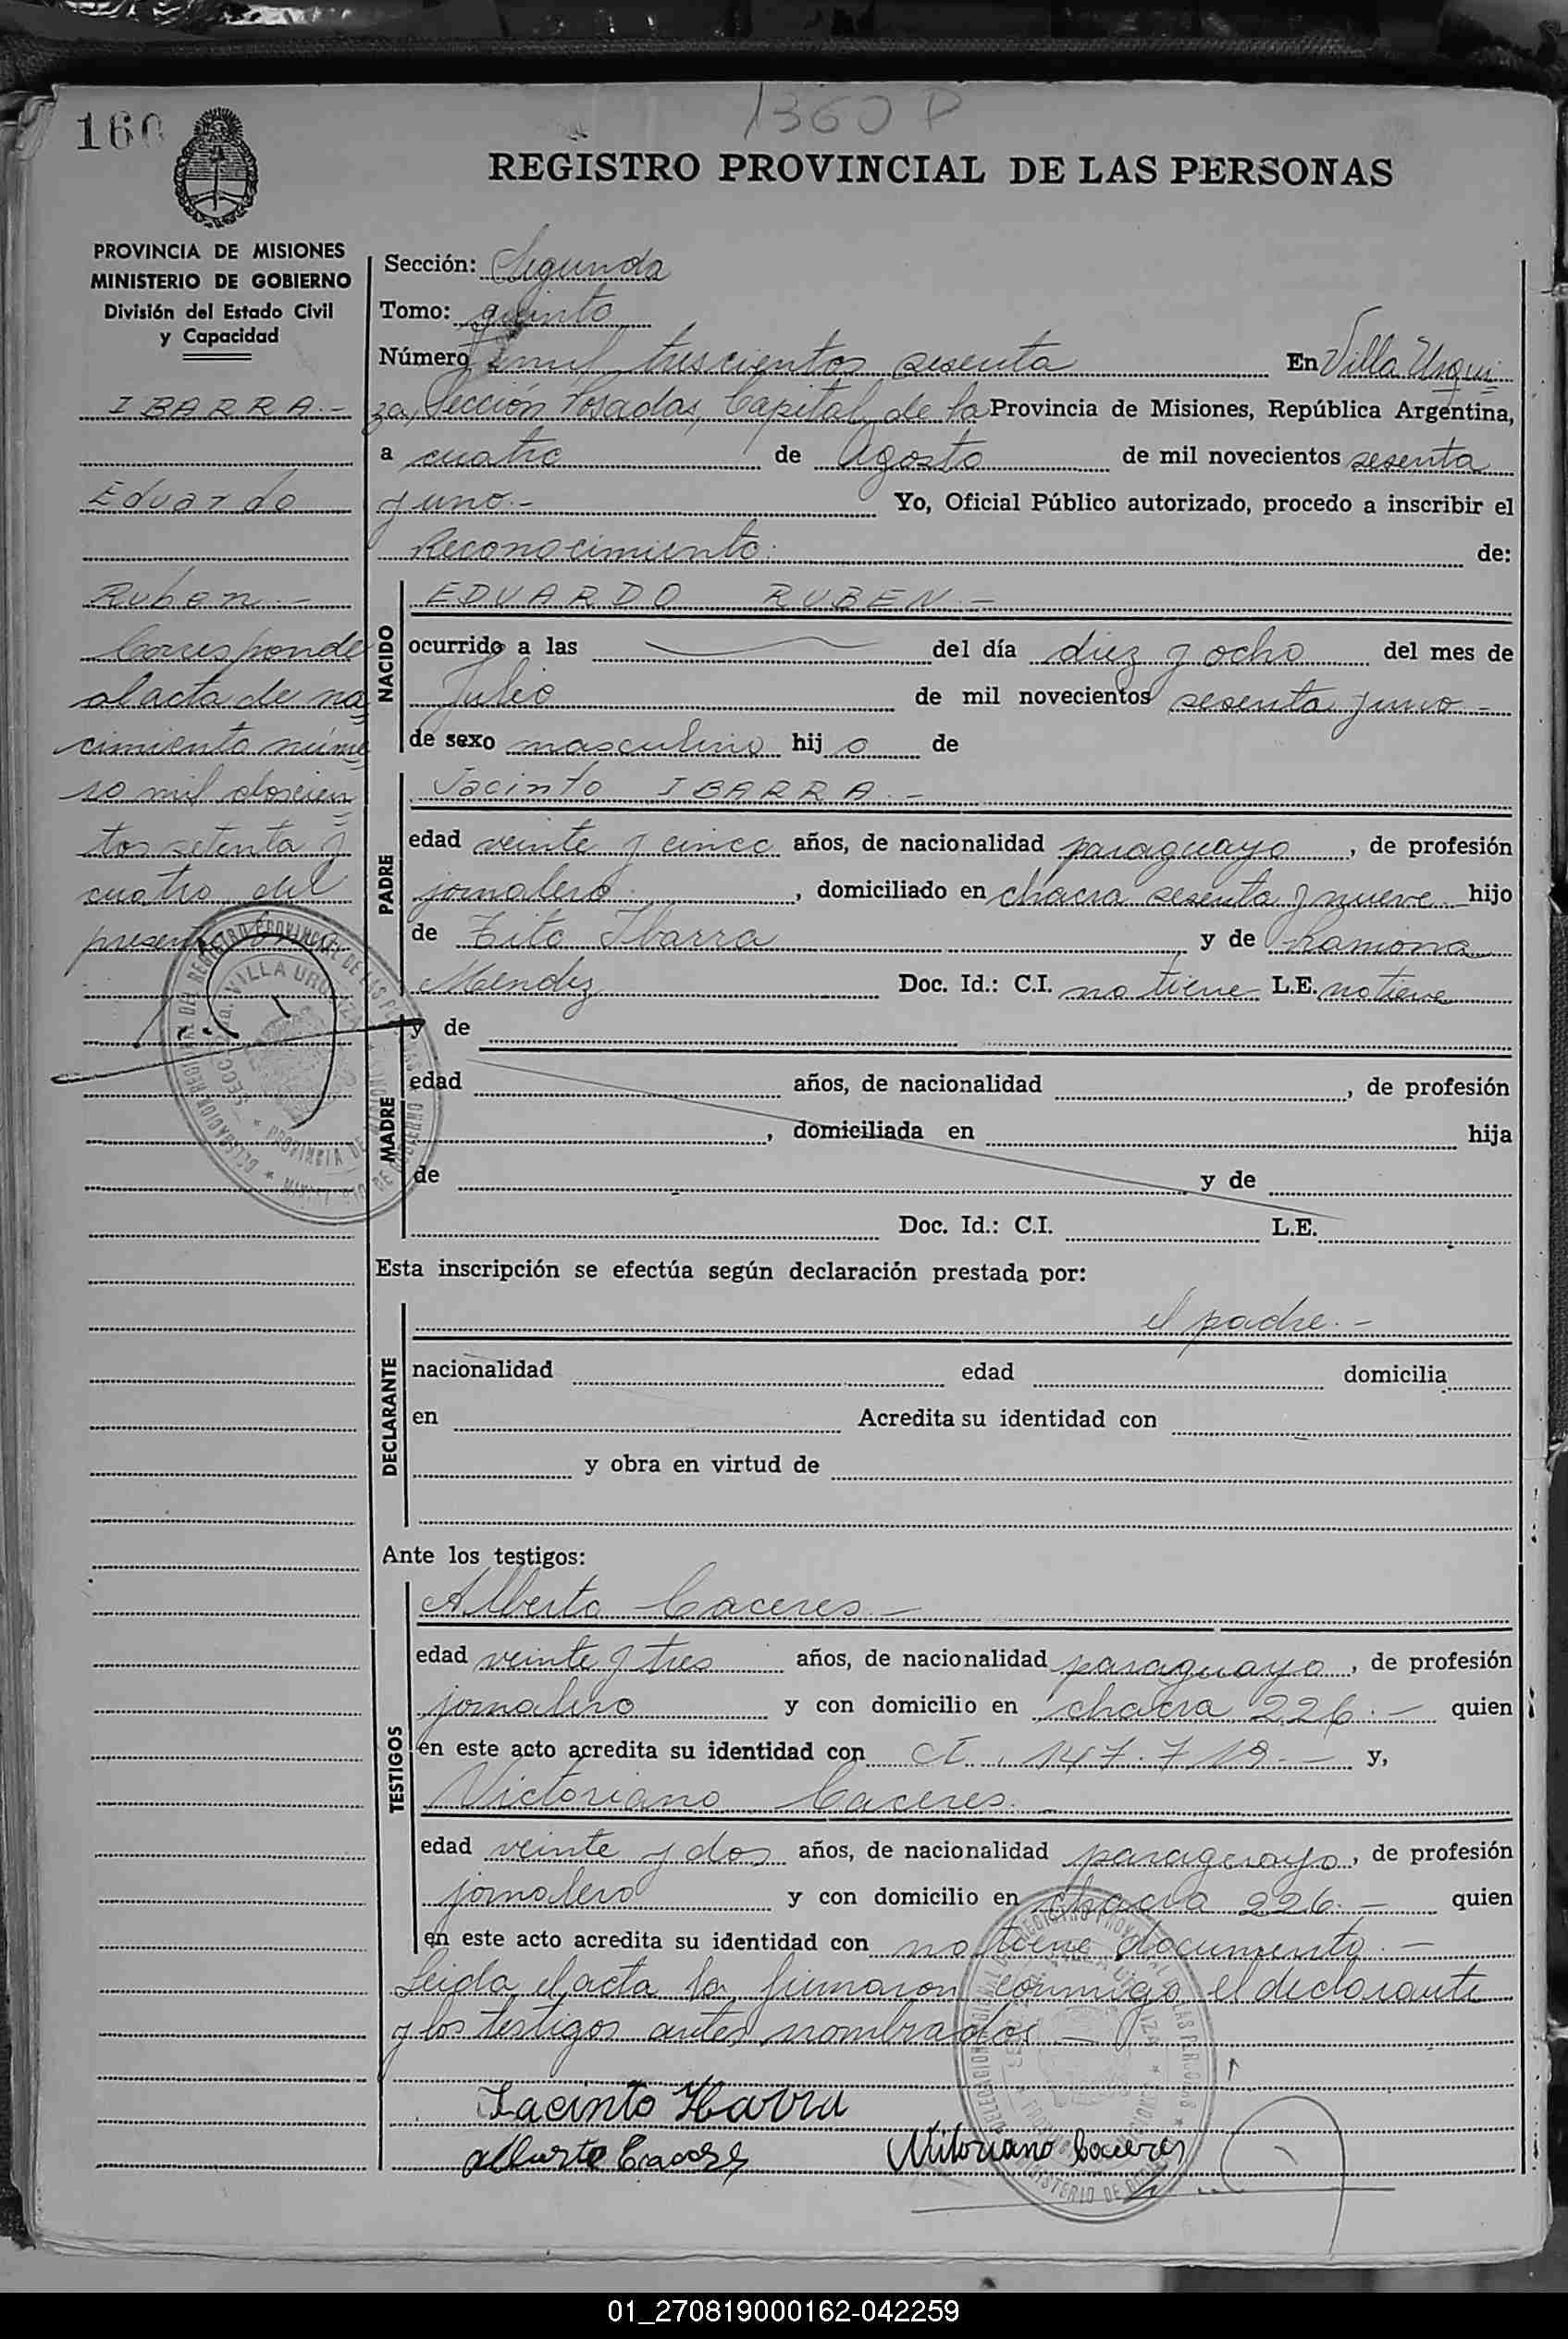 1360 P
160
REGISTRO PROVINCIAL DE LAS PERSONAS
PROVINCIA DE MISIONES
MINISTERIO DE GOBIERNO
División del Estado Civil
y Capacidad
IBARRA.-
Eduardo
Ruben.-
Corresponde
al acta de na
cimiento núme
ro mil doscien
tos setenta y
cuatro del
presente
Sección: Segunda
Tomo: quinto
Número mil trescientos sesenta En Villa Urqui-
za, Sección Posadas, Capital de la Provincia de Misiones, República Argentina,
a cuatro de Agosto de mil novecientos sesenta
y uno.- Yo, Oficial Público autorizado, procedo a inscribir el
Reconocimiento: de:
NACIDO
EDUARDO RUBEN.-
ocurrido a las del día diez y ocho del mes de
Julio de mil novecientos sesenta y uno-
de sexo masculino hijo de
PADRE
Jacinto IBARRA.-
edad veinte y cinco años, de nacionalidad paraguayo, de profesión
jornalero, domiciliado en chacra sesenta y nueve hijo
de Tito Ibarra y de Ramona
Mendez Doc. Id.: C.I. no tiene L.E. no tiene
MADRE
y de
edad años, de nacionalidad , de profesión
, domiciliada en hija
de y de
Doc. Id.: C.I. L.E.
Esta inscripción se efectúa según declaración prestada por:
DECLARANTE
el padre.-
nacionalidad edad domicilia
en Acredita su identidad con
y obra en virtud de
Ante los testigos:
TESTIGOS
Alberto Caceres.-
edad veinte y tres años, de nacionalidad paraguayo, de profesión
jornalero y con domicilio en chacra 226.- quien
en este acto acredita su identidad con CI. 147.719.- y,
Victoriano Caceres.-
edad veinte y dos años, de nacionalidad paraguayo, de profesión
jornalero y con domicilio en chacra 226.- quien
en este acto acredita su identidad con no tiene documento.-
Leida el acta la firmaron conmigo el declarante
y los testigos antes nombrados.-
Jacinto Ibarra
Alberto Caceres
Vitoriano Caceres
01_270819000162-042259